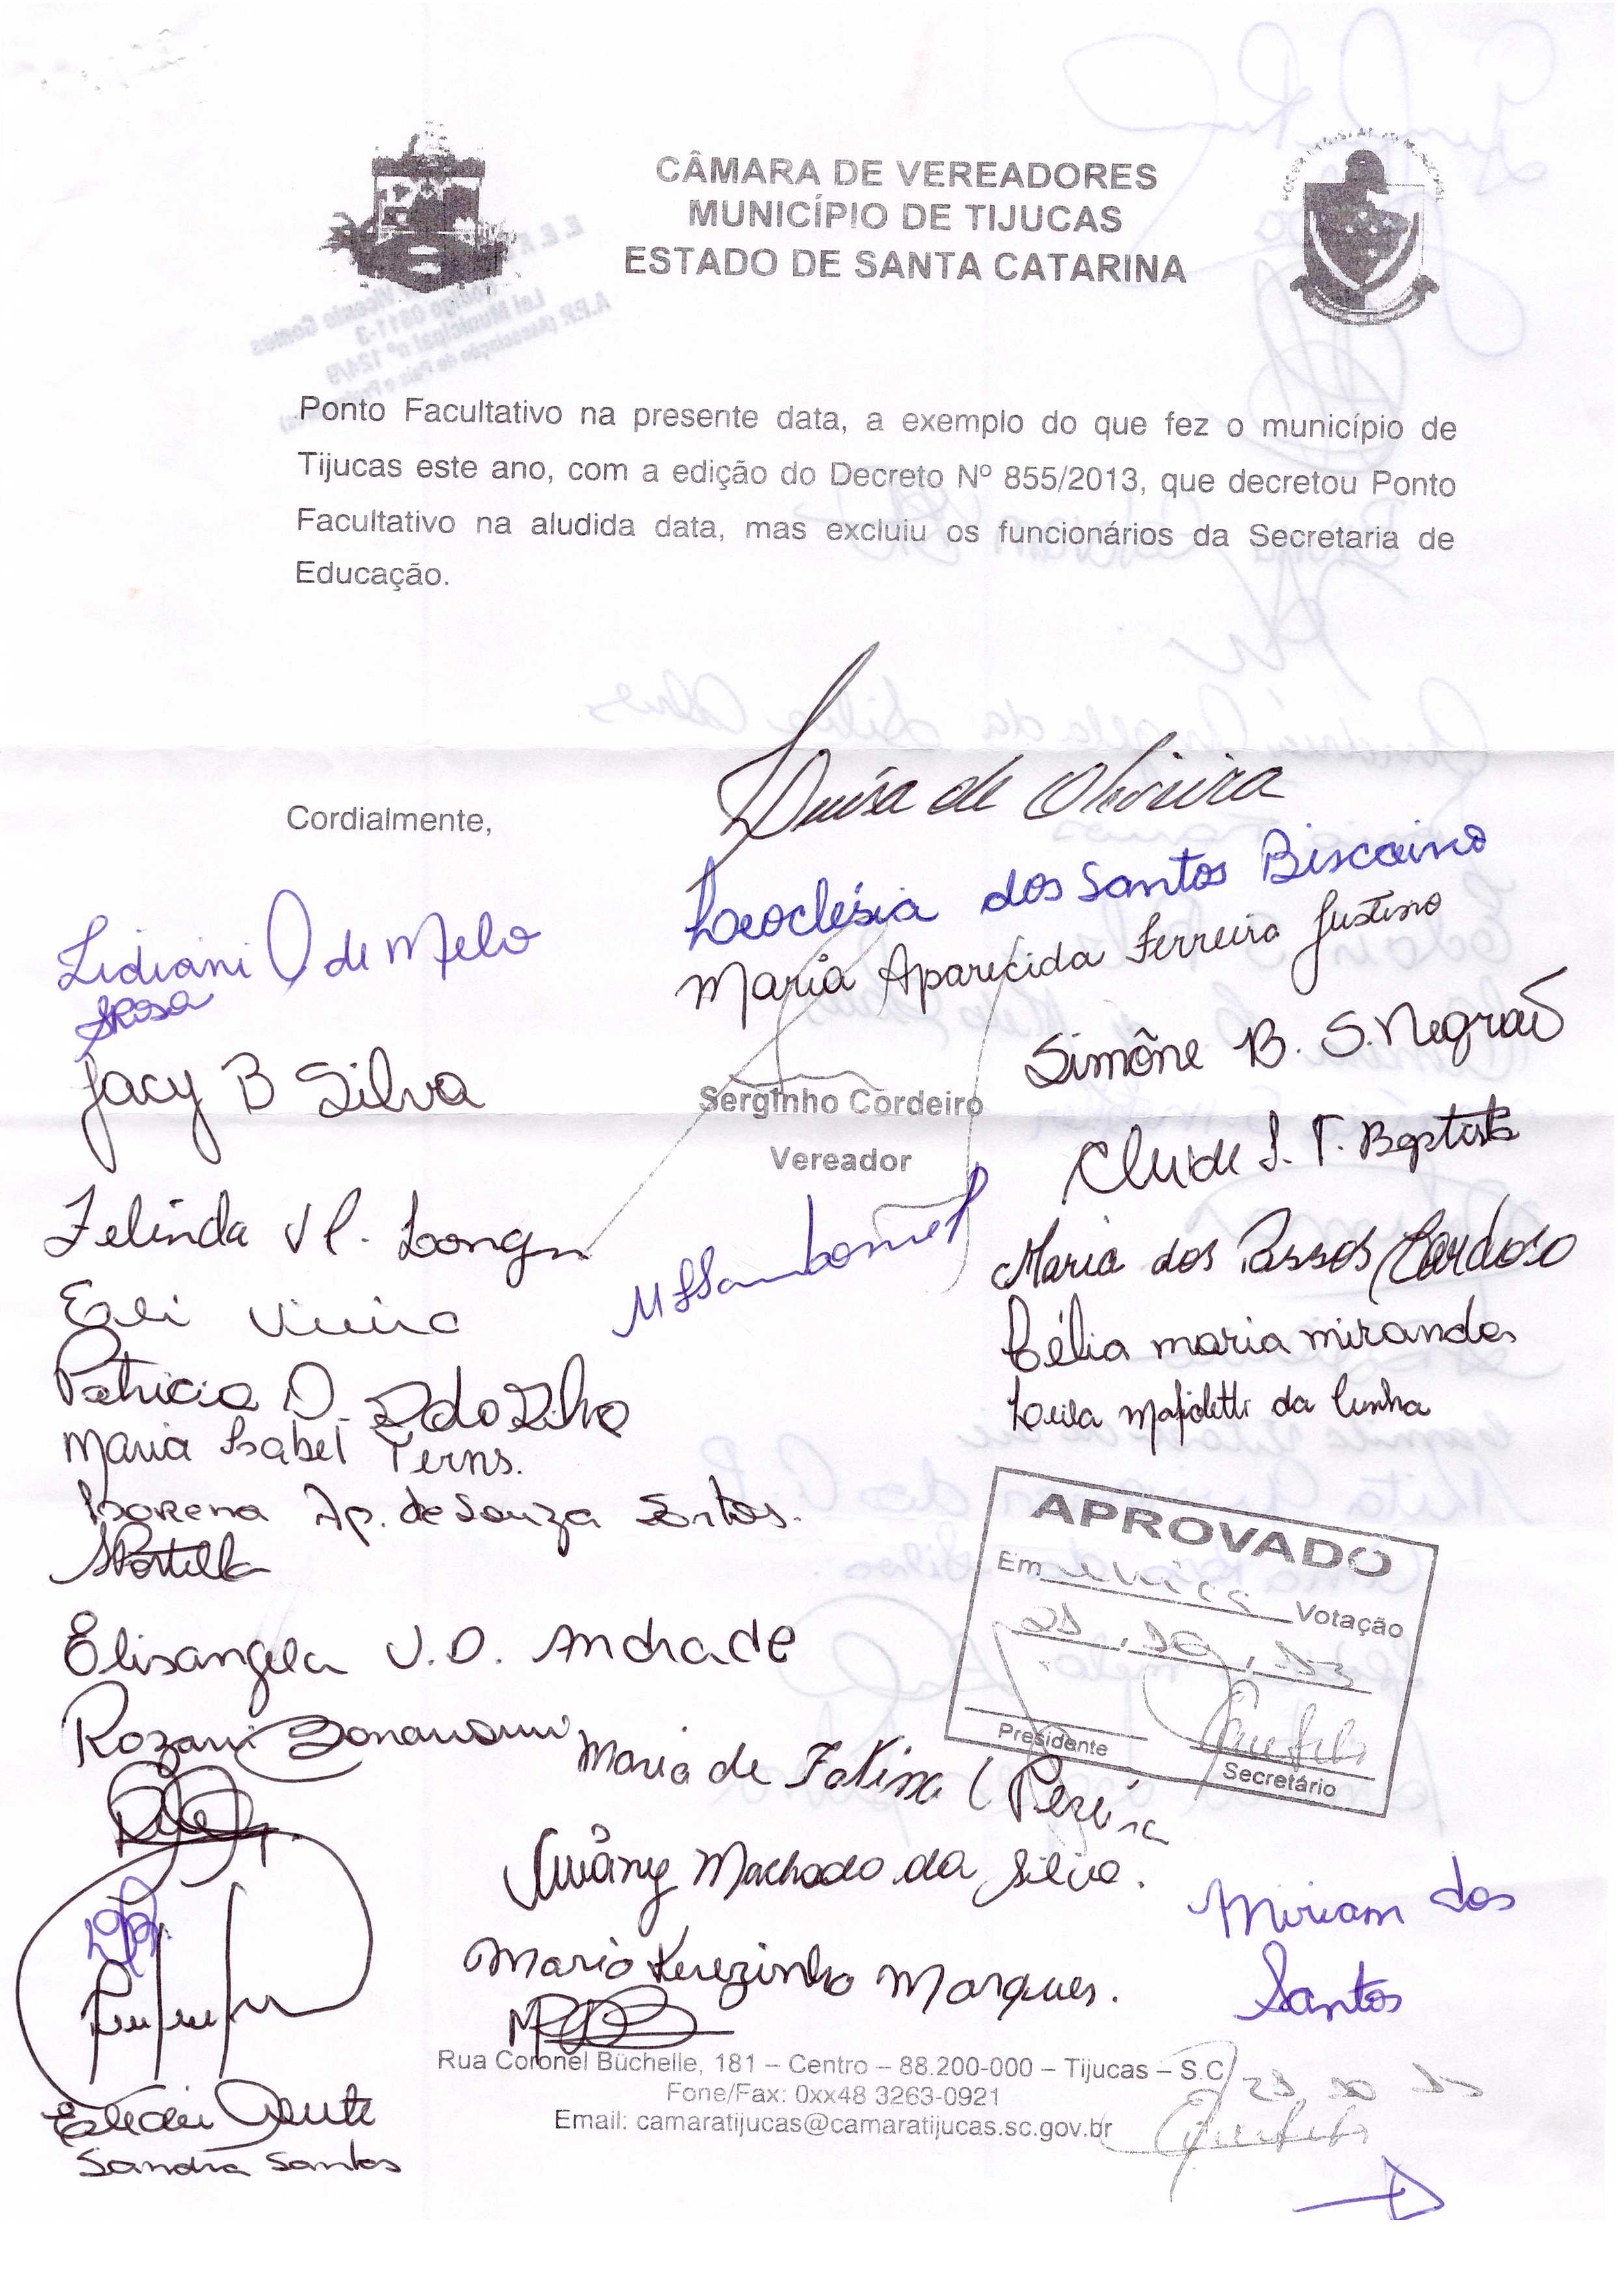 CÂMARA DE VEREADORES
MUNICÍPIO DE TIJUCAS
ESTADO DE SANTA CATARINA
Ponto Facultativo na presente data, a exemplo do que fez o município de
Tijucas este ano, com a edição do Decreto Nº 855/2013, que decretou Ponto
Facultativo na aludida data, mas excluiu os funcionários da Secretaria de
Educação.
Luísa de Oliveira
Cordialmente,
Leoclésia dos Santos Biscaino
Lidiani O de Melo
Maria Aparecida Ferreira Justino
SRosa
Simône B. S. Negrão
Jacy B Silva
Serginho Cordeiro
Vereador
J. T. Baptista
Zelinda
Maria dos Passos Cardoso
Eli Vieira
Célia maria miranda
Patricia D.
Leila da Cunha
Maria Isabel Terns.
Lorena Ap. de Souza Santos.
APROVADO
Em única Votação
21, 10, 13
Presidente
Secretário
Elisangela V.D. Andrade
Rozani
Maria de Fatima C Pereira
Machado da Silva.
Miriam dos
Santos
Maria Terezinha Marques.
Rua Coronel Büchelle, 181 – Centro – 88.200-000 – Tijucas – S.C
Fone/Fax: 0xx48 3263-0921
Email: camaratijucas@camaratijucas.sc.gov.br
Sandra Santos